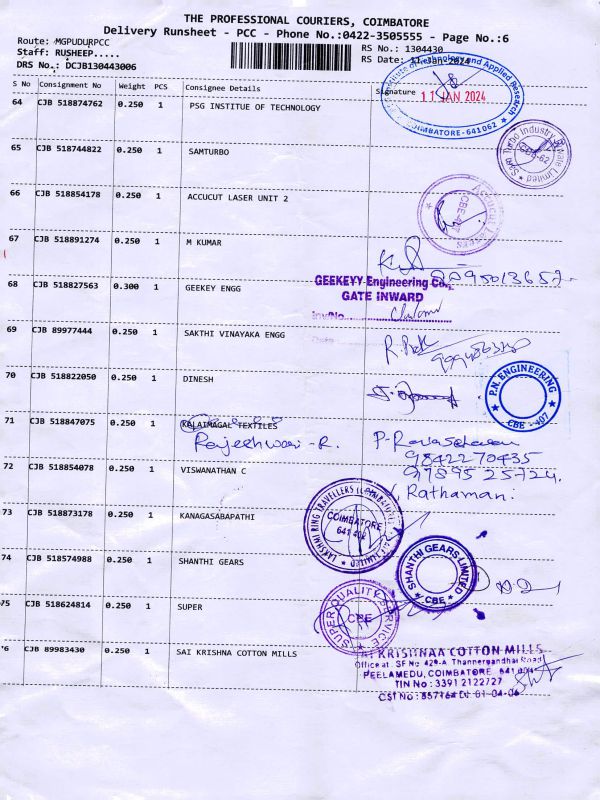 THE PROFESSIONAL COURIERS, COIMBATORE
Delivery Runsheet - PCC - Phone No.:0422-3505555 - Page No.:6
Route: MGPUDURPCC
RS No.: 1304430
Staff: RUSHEEP.....
RS Date: 11 Jan 2024
DRS No.: DCJB130443006
S No Consignment No Weight PCS Consignee Details Signature
11 JAN 2024
64 CJB 518874762 0.250 1 PSG INSTITUE OF TECHNOLOGY
Technology and Applied Research
COIMBATORE-641062
65 CJB 518744822 0.250 1 SAMTURBO
66 CJB 518854178 0.250 1 ACCUCUT LASER UNIT 2
67 CJB 518891274 0.250 1 M KUMAR
68 CJB 518827563 0.300 1 GEEKEY ENGG
GEEKEYY Engineering
GATE INWARD
69 CJB 89977444 0.250 1 SAKTHI VINAYAKA ENGG
70 CJB 518822050 0.250 1 DINESH
P.N. ENGINEERING
CBE - 407
71 CJB 518847075 0.250 1 KALAIMAGAL TEXTILES
Rajeshwari - R.
9842270435
72 CJB 518854078 0.250 1 VISWANATHAN C
97895 25724
Rathamani
73 CJB 518873178 0.250 1 KANAGASABAPATHI
LAKSHMI RING TRAVELLERS
COIMBATORE
641 402
74 CJB 518574988 0.250 1 SHANTHI GEARS
SHANTHI GEARS LIMITED
CBE
75 CJB 518624814 0.250 1 SUPER
SUPER QUALITY SERVICE
CBE
76 CJB 89983430 0.250 1 SAI KRISHNA COTTON MILLS
KRISHNAA COTTON MILLS
Office at. SF No 429-A Thannerpandhal Road
PEELAMEDU, COIMBATORE 641 004
TIN No : 33912122727